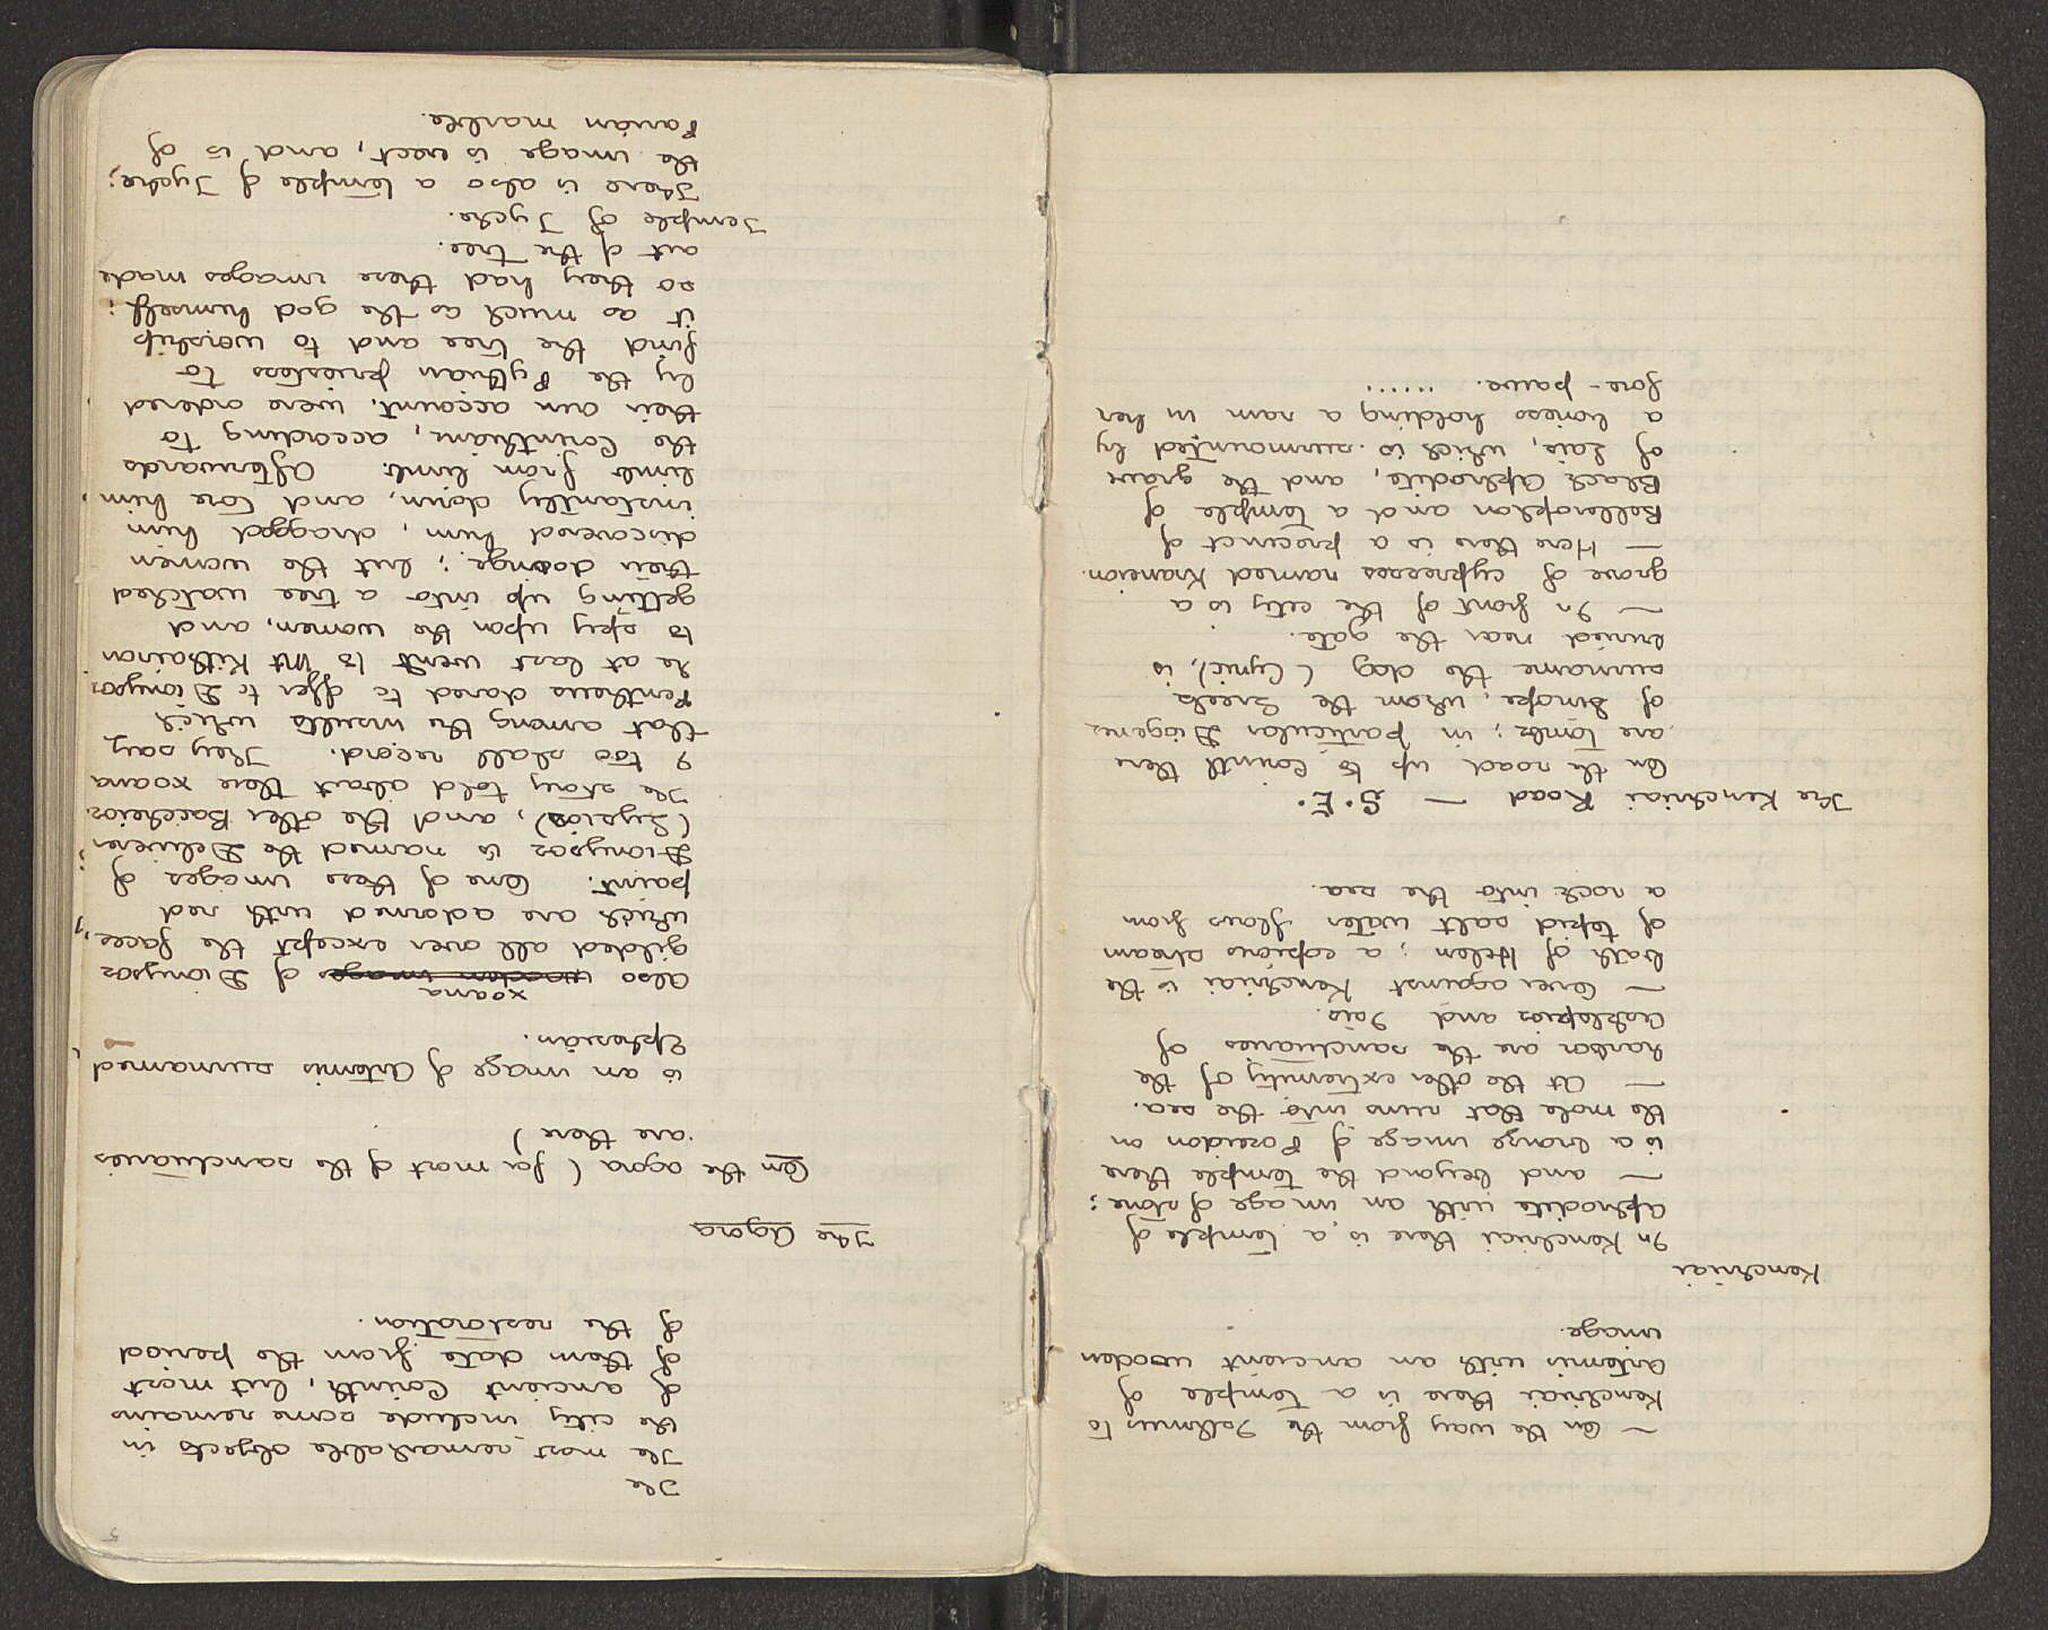 — On the way from the Isthmus to
Kenchriai there is a temple of
Artemis with an ancient wooden
image.
Kenchriai
In Kenchriai there is a temple of
Aphrodite with an image of stone;
— and beyond the temple there
is a bronze image of Poseidon on
the mole that runs into the sea.
— At the other extremity of the
harbor are the sanctuaries of
Asklepios and Isis.
— Over against Kenchriai is the
bath of Helen; a copious stream
of tepid salt water flows from
a rock into the sea.
The Kenchriai Road — S.E.
On the road up to Corinth there
are tombs; in particular Diogenes
of Sinope, whom the Greeks
surname the dog (Cynic), is
buried near the gate.
— In front of the city is a
grove of cypresses named Kraneion.
— Here there is a precinct of
Bellerophon and a temple of
Black Aphrodite, and the grave
of Lais, which is surmounted by
a lioness holding a ram in her
fore-paws. .....
5
The
The most remarkable objects in
the city include some remains
of ancient Corinth, but most
of them date from the period
of the restoration.
The Agora
On the agora (for most of the sanctuaries
are there)
is an image of Artemis surnamed
Ephesian.
xoana
Also wooden images of Dionysos
gilded all over except the faces,
which are adorned with red
paint. One of these images of
Dionysos is named the Deliverer
(Lysios), and the other Baccheios.
The story told about these xoana
I too shall record. They say
that among the insults which
Pentheus dared to offer to Dionysos
he at last went to Mt Kithairon
to spy upon the women, and
getting up into a tree watched
their doings; but the women
discovered him, dragged him
instantly down, and tore him
limb from limb. Afterwards
the Corinthians, according to
their own account, were ordered
by the Pythian priestess to
find the tree and to worship
it as much as the god himself;
so they had these images made
out of the tree.
Temple of Tyche.
There is also a temple of Tyche;
the image is erect, and is of
Parian marble.